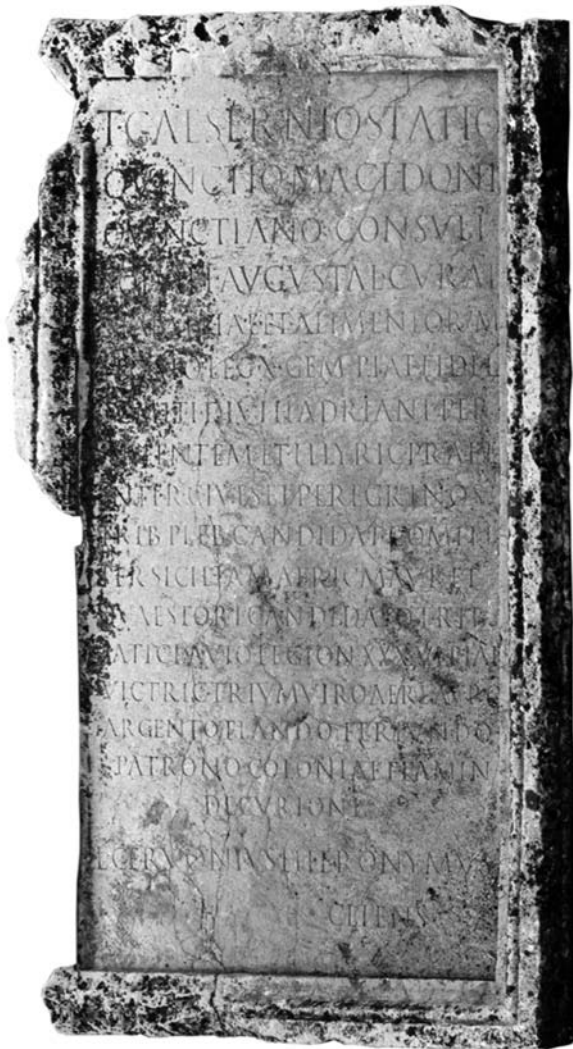 T CAESERNIO STATIO
QVINCTIO MACEDONI
QVINCTIANO CONSVLI
AVGVSTAL CVRAT
ET ALIMENTORVM
LEG X GEM PIAE FIDEL
COMITI DIVI HADRIANI PER
ORIENTEM ET ILLYRIC PRAET
INTER CIVES ET PEREGRINOS
TRIB PLEB CANDIDATO COMITI
PER SICILIAM AFRIC MAVRET
QVAESTORI CANDIDATO TRIB
LATICLAVIO LEGION XXX VLPIAE
VICTRIC TRIVMVIRO AERE AVRO
ARGENTO FLANDO FERIVNDO
PATRONO COLONIAE FLAMIN
DECVRIONI
HIERONYMVS
CLIENS